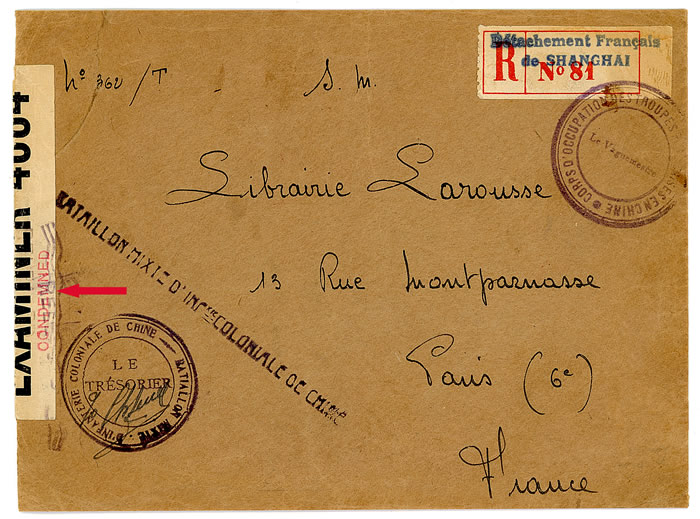 Nº 362/T - S. M.
Détachement Français
de SHANGHAI
R Nº 81
CORPS D'OCCUPATION DES TROUPES FRANÇAISES EN CHINE
Le Vaguemestre
Librairie Larousse
13 Rue Montparnasse
Paris (6e)
France
BATAILLON MIXTE D'INFrie COLONIALE DE CHINE
BATAILLON MIXTE D'INFANTERIE COLONIALE DE CHINE
LE
TRÉSORIER
EXAMINER 4004
CONDEMNED